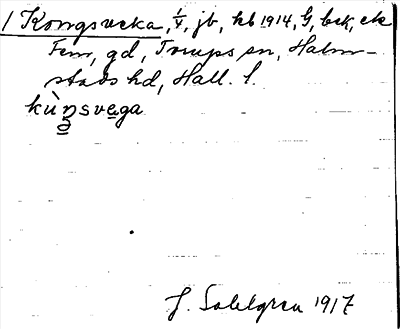 1 Kongsvecka, 1/8, jb, kb 1914, G, bck, ek
Fem, gd, Trönps sn, Halm-
stads hd, Hall. l.
kùŋsvega
J. Sahlgren 1917